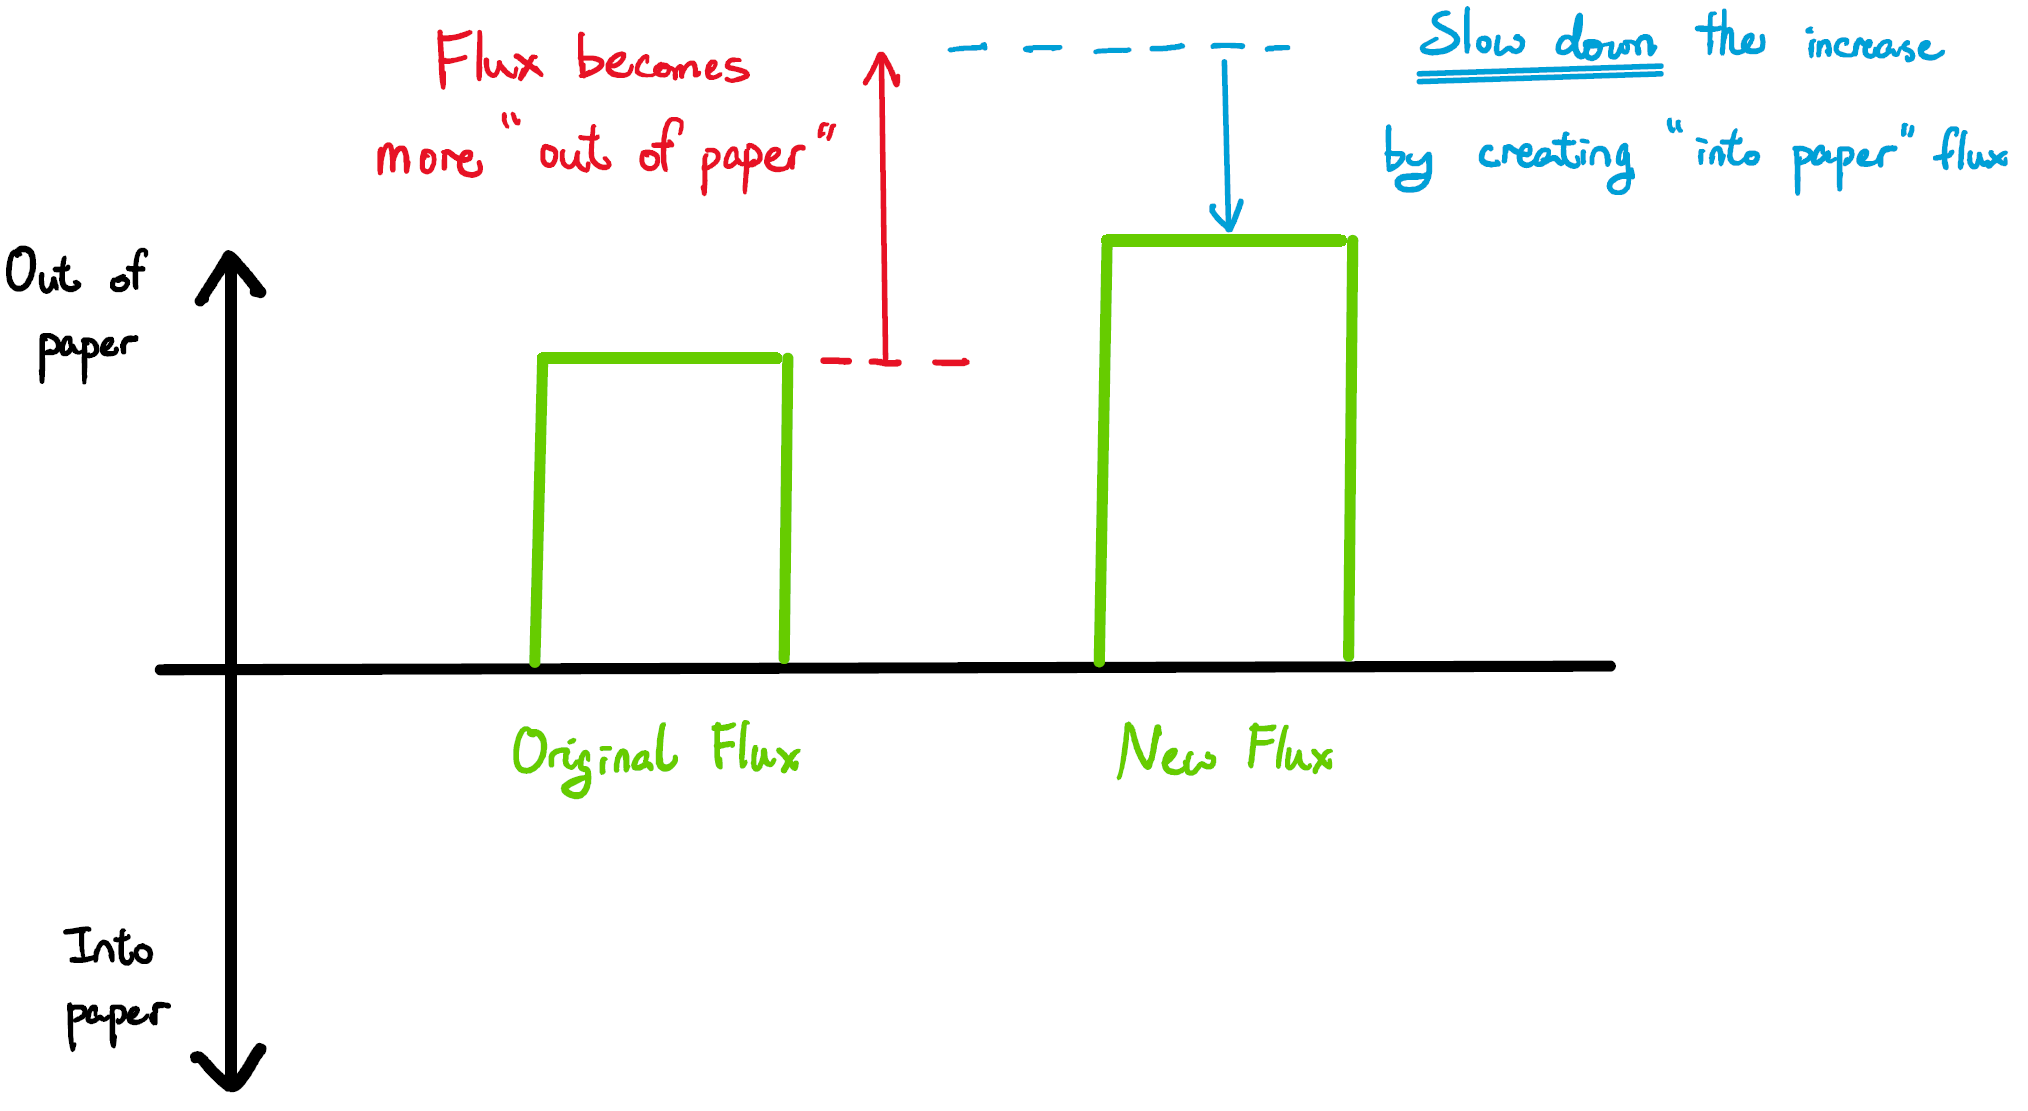 Flux becomes
more "out of paper"
Slow down the increase
by creating "into paper" flux
Out of
paper
Original Flux
New Flux
Into
paper